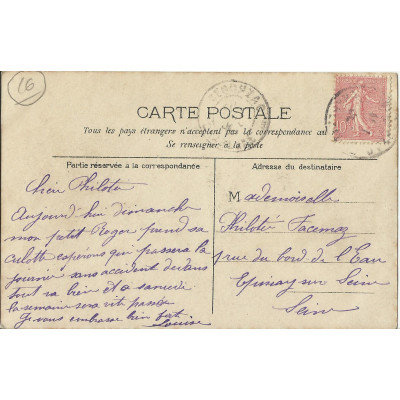 16
CARTE POSTALE
Tous les pays étrangers n'acceptent pas la correspondance au
Se renseigner à la poste
Partie réservée à la correspondance
Adresse du destinataire
Chère Philotée
Aujourd hui dimanche
mon petit Roger prend sa
culotte espérons qui passera la
journée sans accident dedans
tout va bien et a samedi
la semaine sera vite passée
Je vous embrasse bien fort
Louise
Mademoiselle
Philotée
rue du bord de l'Eau
Epinay sur Seine
Seine